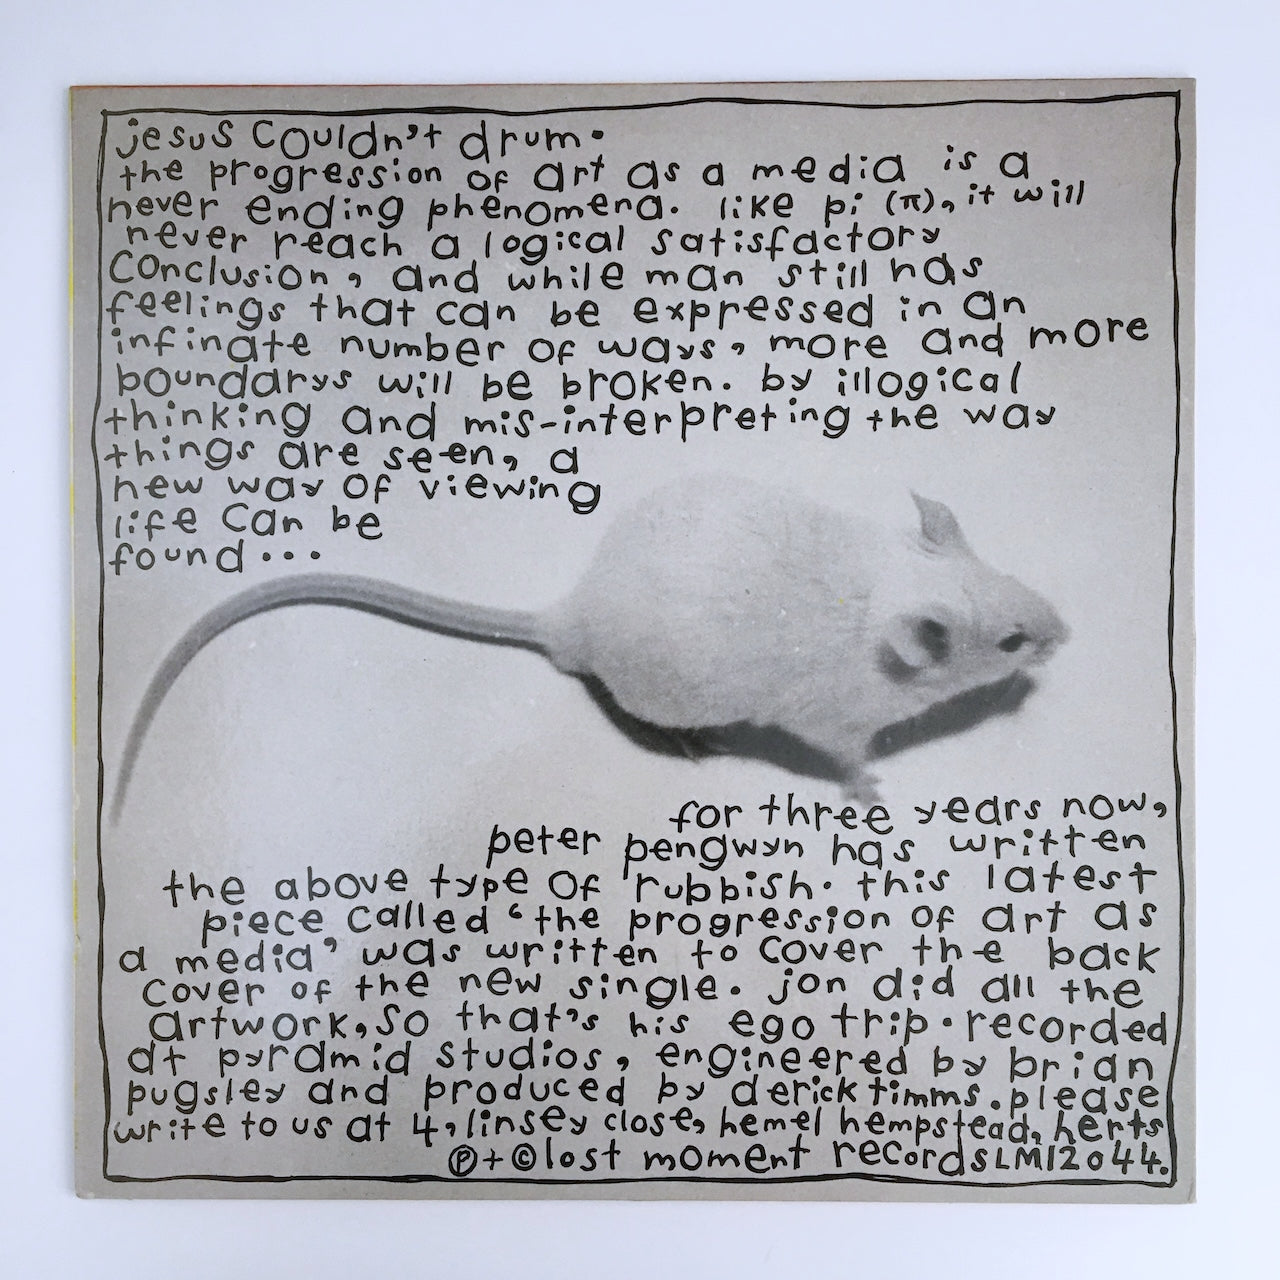 jesus couldn't drum.
the progression of art as a media is a
never ending phenomena. like pi (π), it will
never reach a logical satisfactory
conclusion, and while man still has
feelings that can be expressed in an
infinate number of ways, more and more
boundarys will be broken. by illogical
thinking and mis-interpreting the way
things are seen, a
new way of viewing
life can be
found...
for three years now,
peter pengwyn has written
the above type of rubbish. this latest
piece called 'the progression of art as
a media' was written to cover the back
cover of the new single. jon did all the
artwork, so that's his ego trip. recorded
at pyramid studios, engineered by brian
pugsley and produced by derick timms. please
write to us at 4, linsey close, hemel hempstead, herts
℗+© lost moment records LM12044.